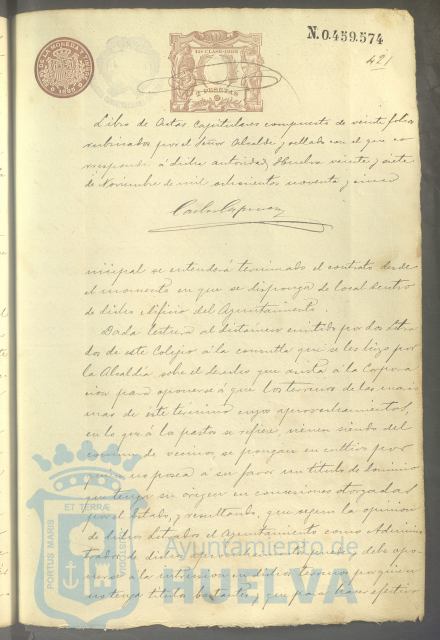 N.0.459.574
421
12ª CLASE-1895
2 PESETAS
Libro de Actas Capitulares compuesto de veinte folios
rubricados por el Señor Alcalde y sellado con el que co-
rresponde á dicha autoridad, Huelva veinte y siete
de Noviembre de mil ochocientos noventa y cinco
nicipal se entenderá terminado el contrato desde
el momento en que se disponga de local dentro
de dicho edificio del Ayuntamiento.
Dada lectura al dictámen emitido por dos Letra-
dos de este Colegio á la consulta que se les hizo por
la Alcaldía sobre el derecho que asista á la Corpora-
ción para oponerse á que los terrenos de las maris-
mas de este término cuyos aprovechamientos,
en lo que á los pastos se refiere, vienen siendo del
comun de vecinos, se pongan en cultivo por
quien no posea á su favor un título de dominio
que tenga su origen en concesiones otorgadas
por el Estado, y resultando, que segun la opinión
de dichos Letrados el Ayuntamiento como Adminis-
trador de
á la en dichos terrenos por quien
no tenga títulos bastantes, y que para hacer efectivo
PORTUS MARIS
ET TERRÆ
CUSTODIA
Ayuntamiento de
HUELVA